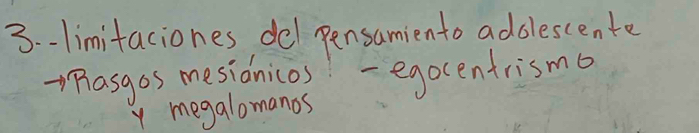 3.-- limitaciones del pensamiento adolescente
→ Rasgos mesiánicos - egocentrismo
y megalomanos